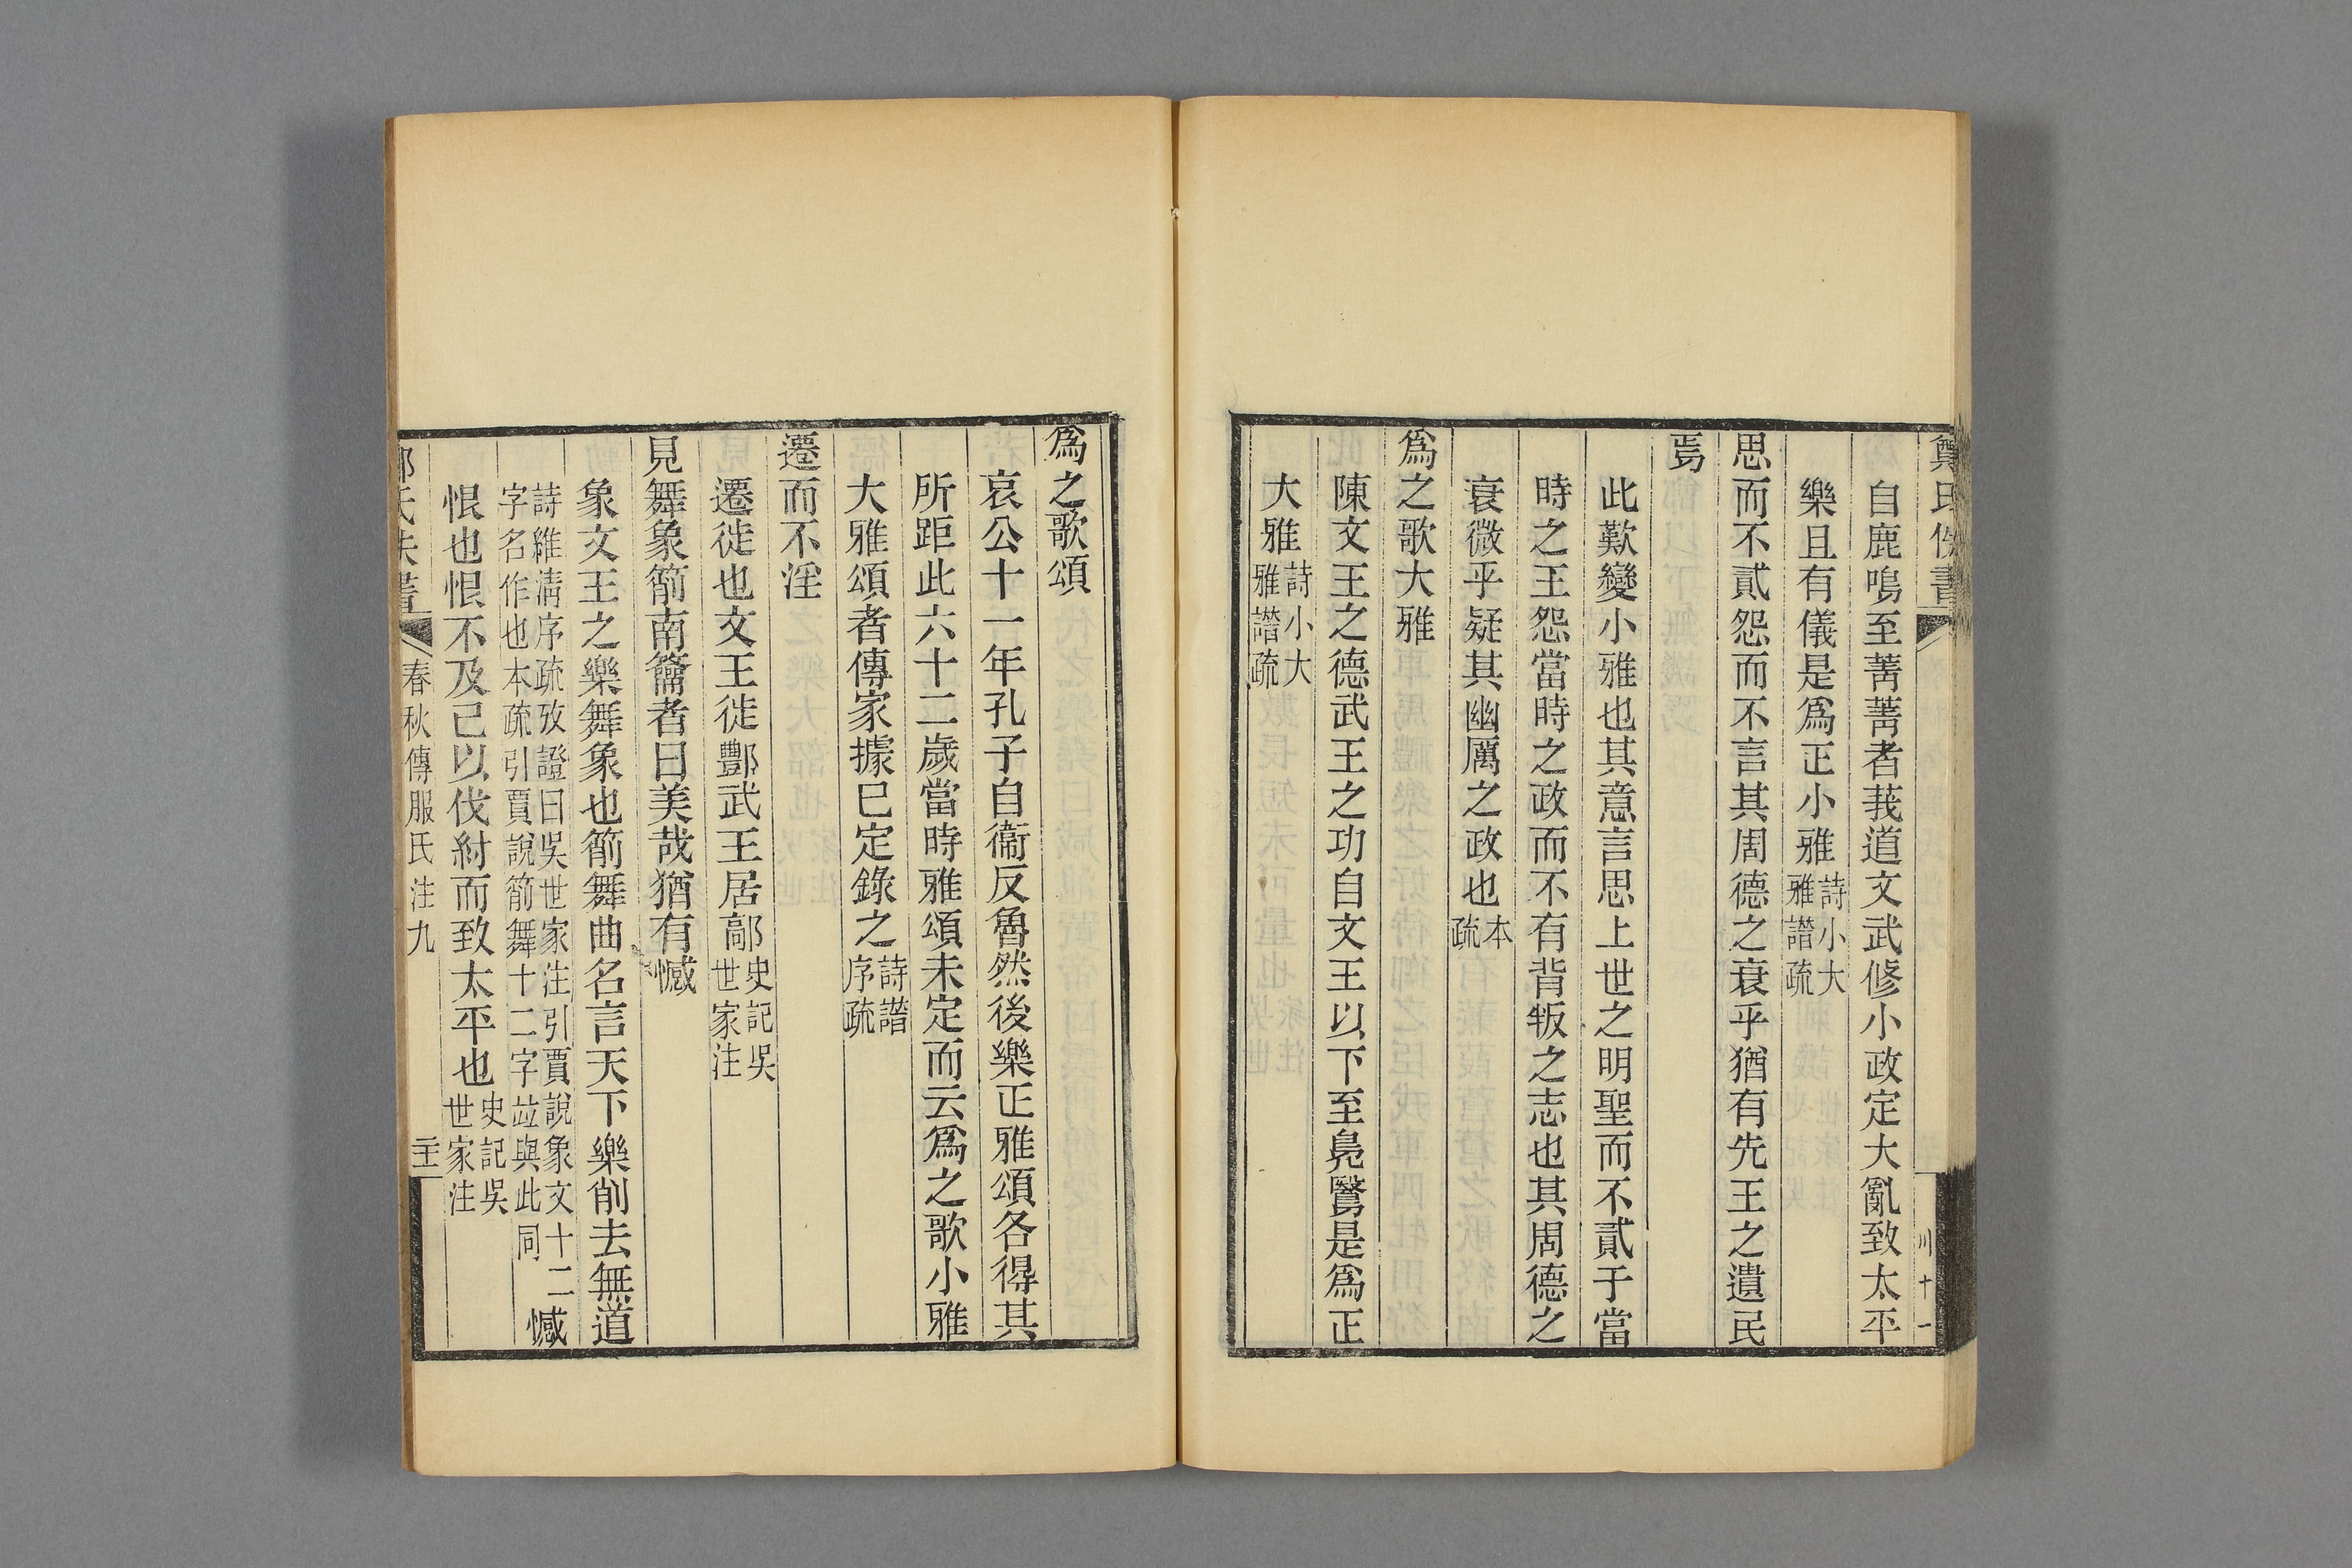 自鹿鳴至菁菁者莪道文武修小政定大亂致太平
樂且有儀是爲正小雅詩小大雅譜疏
思而不貳怨而不言其周德之衰乎猶有先王之遺民
焉
此歎變小雅也其意言思上世之明聖而不貳于當
時之王怨當時之政而不有背叛之志也其周德之
衰微乎疑其幽厲之政也本疏
爲之歌大雅
陳文王之德武王之功自文王以下至鳧鷖是爲正
大雅詩小大雅譜疏
爲之歌頌
哀公十一年孔子自衞反魯然後樂正雅頌各得其
所距此六十二歲當時雅頌未定而云爲之歌小雅
大雅頌者傳家據已定錄之詩譜序疏
遷而不淫
遷徙也文王徙酆武王居鄗史記吳世家注
見舞象箾南籥者曰美哉猶有憾
象文王之樂舞象也箾舞曲名言天下樂削去無道
詩維清序疏攷證曰吳世家注引賈說象文十二字名作也本疏引賈說箾舞十二字竝與此同憾
恨也恨不及己以伐紂而致太平也史記吳世家注
春秋傳服氏注九